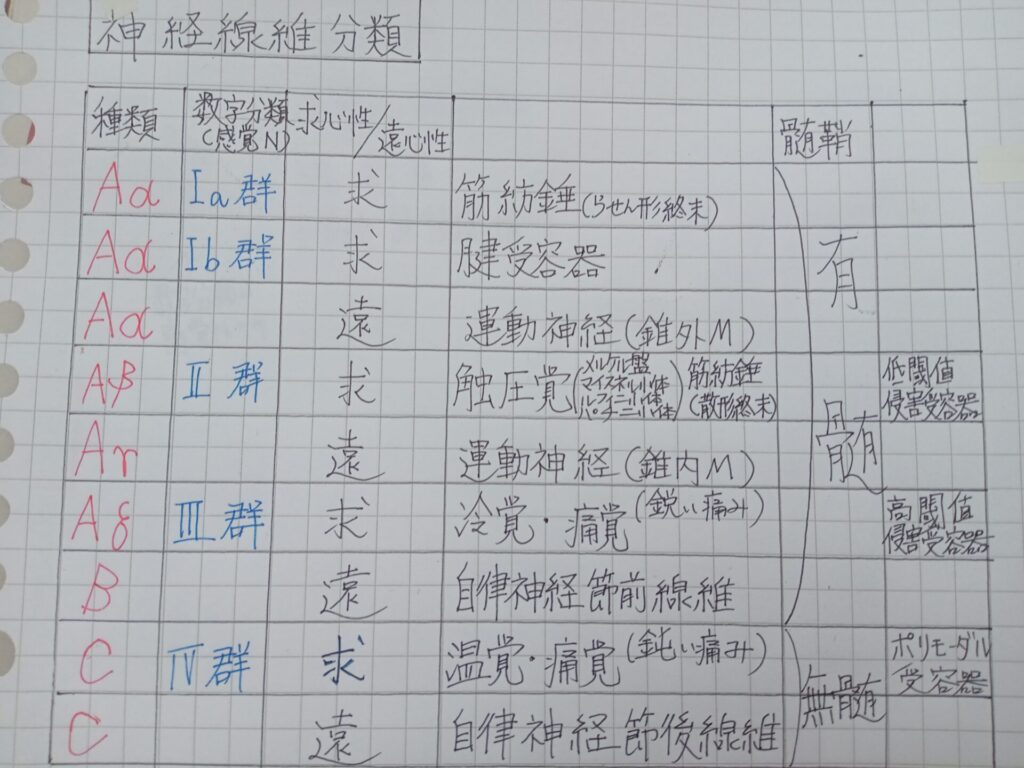 神経線維分類
種類 数字分類(感覚N) 求心性/遠心性 髄鞘
Aα Ⅰa群 求 筋紡錘(らせん形終末)
Aα Ⅰb群 求 腱受容器
Aα 遠 運動神経(錐外M)
有髄
Aβ Ⅱ群 求 触圧覚(メルケル盤 マイスネル小体 ルフィニ小体 パチニ小体) 筋紡錘(散形終末) 低閾値侵害受容器
Aγ 遠 運動神経(錐内M)
Aδ Ⅲ群 求 冷覚・痛覚(鋭い痛み) 高閾値侵害受容器
B 遠 自律神経節前線維
C Ⅳ群 求 温覚・痛覚(鈍い痛み) 無髄 ポリモーダル受容器
C 遠 自律神経節後線維